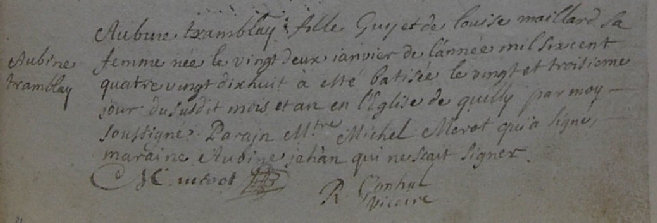 Aubine tramblay
Aubine tramblay fille Guy et de louise maillard sa
femme née le vingt deux ianvier de l'année mil six cent
quatre vingt dixhuit à esté batisée le vingt et troisieme
jour du susdit mois et an en l'Eglise de quilly par moy
soussigné. Parain Mtre Michel Merot qui a signé,
maraine Aubine jehan qui ne scait signer.
R
Vicaire